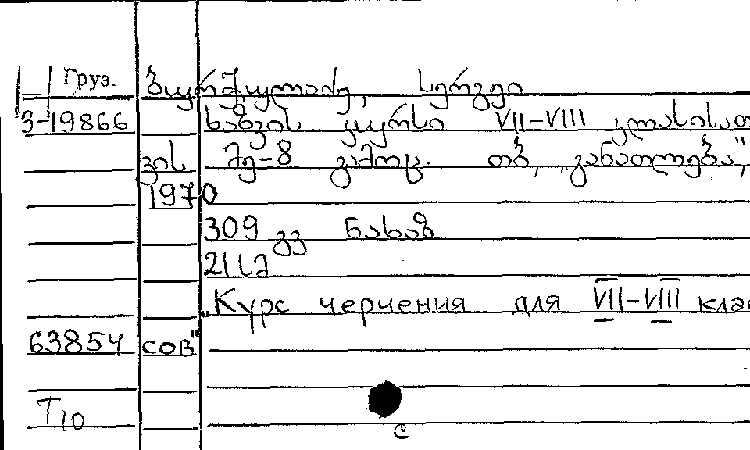 Груз. ბურჭულაძე, სერგეი
3-19866 ხაზვის კურსი VII-VIII კლასისათ
ვის მე-8 გამოც. თბ, „განათლება",
1970
309 გვ ნახაზ
21სმ
„Курс черчения для VII-VIII клас
63854 сов"
T10
с